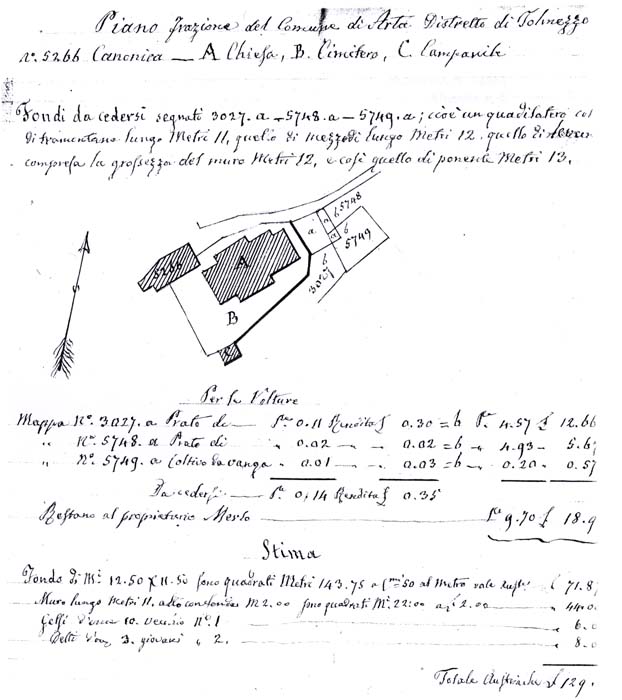 Piano Frazione del Comune di Arta Distretto di Tolmezzo
N°. 5266 Canonica — A Chiesa, B. Cimitero, C. Campanile
Fondi da cedersi segnati 3027.a - 5748.a - 5749.a; cioè un quadilatero col
di tramontano lungo Metri 11, quelo di mezzodì lungo Metri 12. quello di
compresa la grossezza del muro Metri 12, e così quello di ponente Metri 13.
5266
A
B
a
a
a
b
b
b
5748
5749
3027
Per le Volture
Mappa N°. 3027.a Prato di — 0.11 Rendita £ 0.30 = b 4.57 £ 12.66
" N°. 5748.a Prato di " 0.02 — 0.02 = b " 4.93 - 5.6
" N°. 5749.a Coltivo da vanga " 0.01 — 0.03 = b " 0.20 " 0.57
Da cedersi — 0.14 Rendita £ 0.35
Restano al proprietario — 9.70 £ 18.9
Stima
Fondo di M. 12.50 X 11.50 sono quadrati Metri 143.75 a 50 al Metro vale £ 71.8
Muro lungo Metri 11. alto M 2.00 sono quadrati M. 22:00 a £ 2.00 — " 44.0
Gelsi 10. N°. 1 " 6.0
Detti 3. giovani " 2. " 8.0
Totale Austriache £ 129.